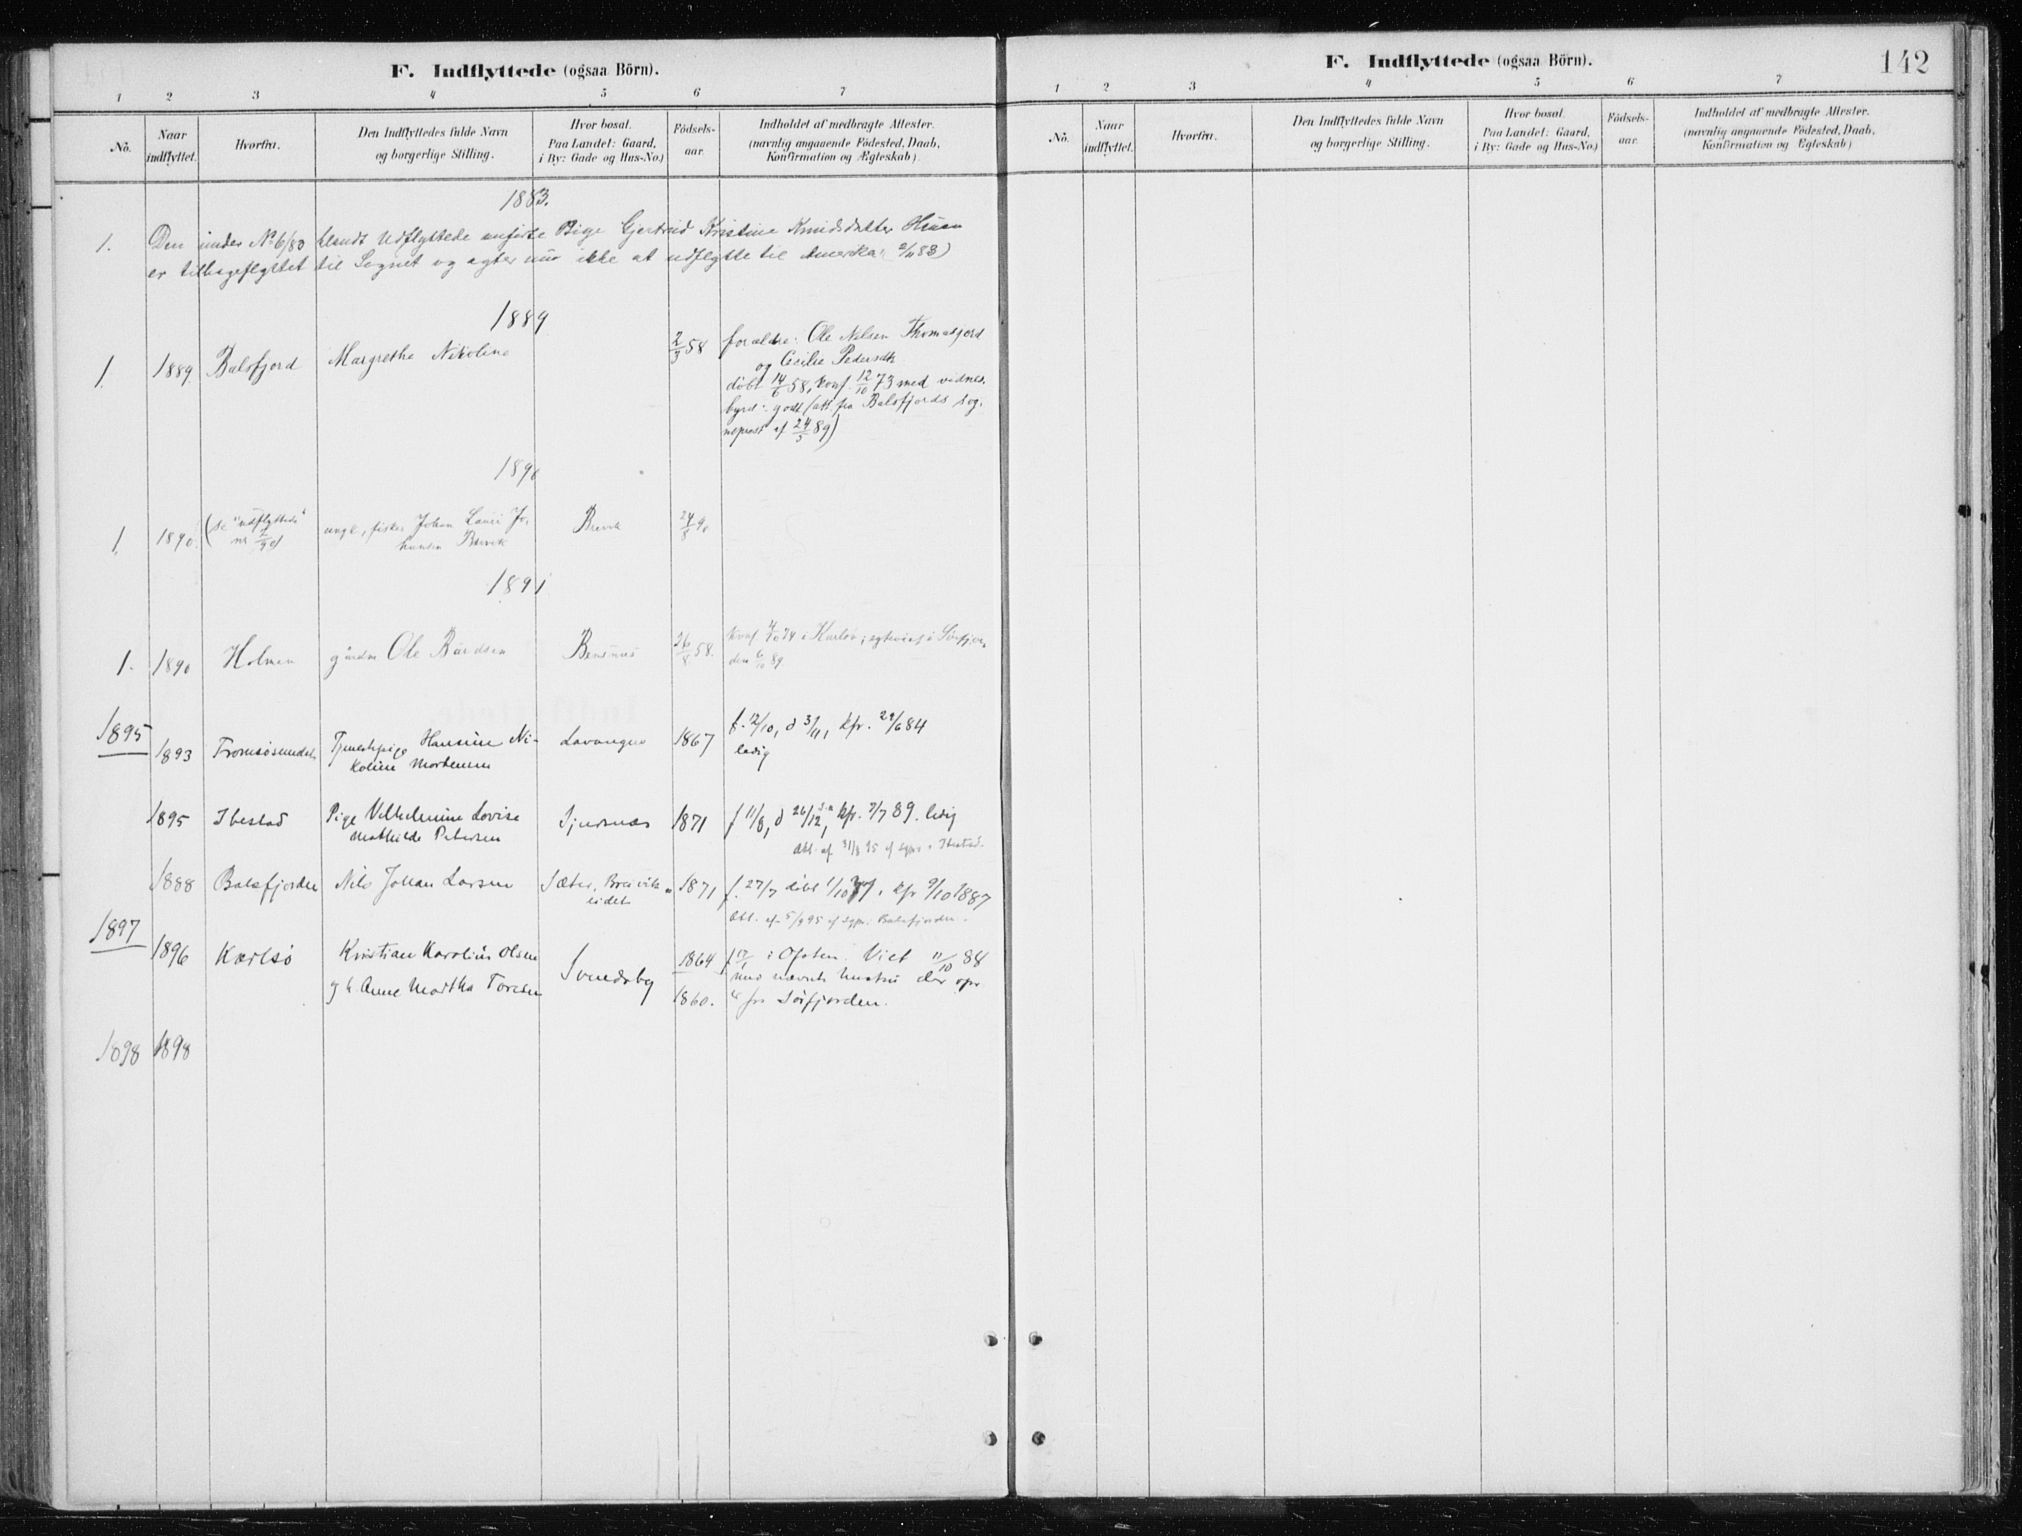 F. Indflyttede (ogsaa Börn).
1 2 3 4 5 6 7
No.
Naar indflyttet.
Hvorfra.
Den Indflyttedes fulde Navn
og borgerlige Stilling.
Hvor bosat.
Paa Landet: Gaard,
i By: Gade og Hus-No.)
Födsels-
aar.
Indholdet af medbragte Attester.
(navnlig angaaende Födested, Daab,
Konfirmation og Ægteskab)
1883.
1. Den under No 6/83 blandt Udflyttede anførte Pige Gjertrud Kristine Knudsdatter
er tilbageflyttet til Sognet og agter nu ikke at udflytte til Amerika 2/11 83)
1889
1. 1889 Balsfjord Margrethe Nikoline 2/3 58 forældre: Ole Nilsen Thomasjord
og Cecilie Pedersdtr
døbt 14/6 58, konf. 12/10 73 med vidnes-
byrd: godt (att. fra Balsfjords sog-
neprest af 24/5 89)
1890
1. 1890 (se "udflyttede" ungk., fisker Johan Jo- Brevik 24/8 90
nr 2/90) hansen Brevik
1891
1. 1890 Holmen gårdm Ole Bårdsen Bensnes 26/8 58. konf. 4/10 74 i Karlsø; egteviet i Sørfjor
den 6/10 89
1895
1893 Tromsøsundet Tjenestepige Hansine Ni- Lavangen 1867 f. 12/10, d 3/11, kfr. 29/6 84
koline Mortensen ledig
1895 Ibestad Pige Vilhelmine Lovise Sjursnes 1871 f 11/8, d 26/12, kfr. 7/7 89. ledig
Mathilde Petersen Att. af 31/8 95 af sgpr. i Ibestad.
1888 Balsfjorden Nils Johan Larsen Sæter, Breivik- 1871 f. 27/7 døbt 1/10 kfr 9/10 1887
eidet Att. af 5/9 95 af sgpr. i Balsfjorden.
1897
1896 Karlsö Kristian Karolius Olsen Svendsby 1864 i Ofoten. Viet 11/10 88
g h. Anne Martha Toresen 1860. med nævnte hustru der opr
er fra Sörfjorden.
1898 1898
F. Indflyttede (ogsaa Börn).
142
1 2 3 4 5 6 7
No.
Naar
indflyttet.
Hvorfra.
Den Indflyttedes fulde Navn
og borgerlige Stilling.
Hvor bosat.
Paa Landet: Gaard,
i By: Gade og Hus-No.)
Födsels-
aar.
Indholdet af medbragte Attester.
(navnlig angaaende Födested, Daab,
Konfirmation og Ægteskab)